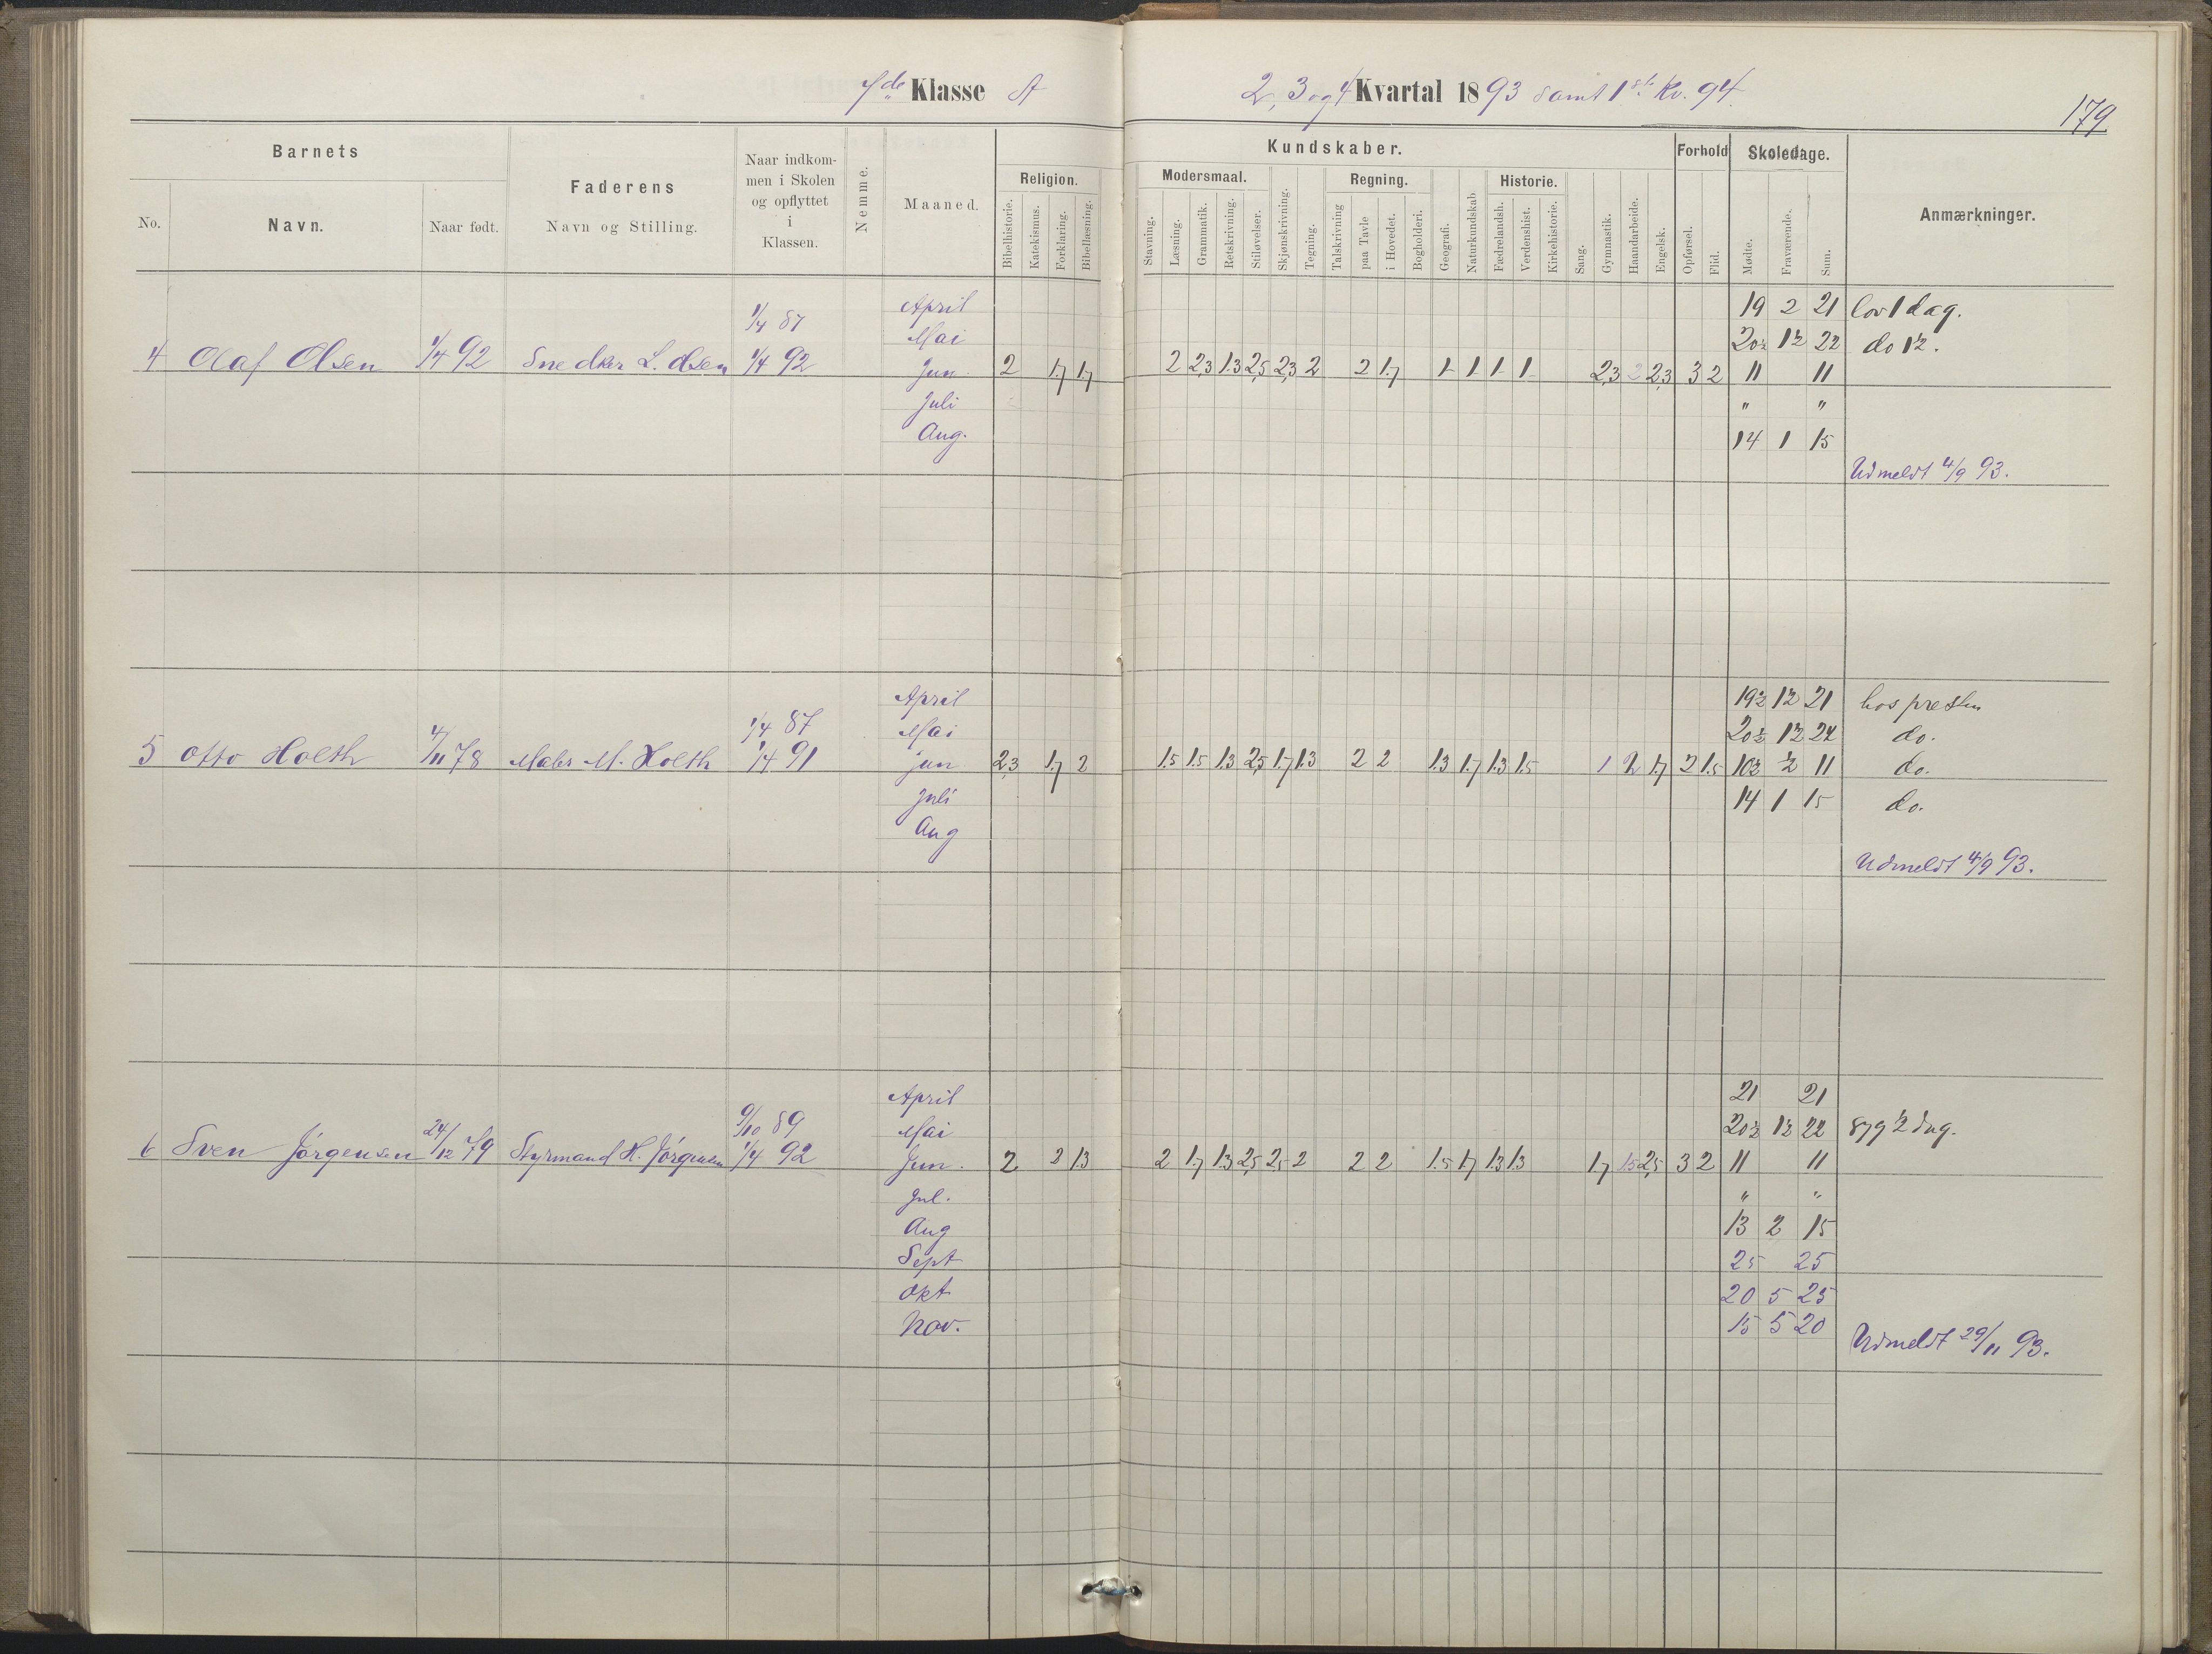 Klasse A
2, 3 og 4 Kvartal 1893 samt 1ste Kv. 94.
179
Barnets
Faderens
Naar indkommen i Skolen og opflyttet i Klassen.
Nemme.
Maaned.
Kundskaber.
Forhold
Skoledage.
Anmærkninger.
No.
Navn.
Naar født.
Navn og Stilling.
Religion.
Modersmaal.
Regning.
Historie.
Bibelhistorie.
Katekismus.
Forklaring.
Bibellæsning.
Stavning.
Læsning.
Grammatik.
Retskrivning.
Stiløvelser.
Skjønskrivning.
Tegning.
Talskrivning
paa Tavle
i Hovedet.
Bogholderi.
Geografi.
Naturkundskab
Fædrelandsh.
Verdenshist.
Kirkehistorie.
Sang.
Gymnastik.
Haandarbeide.
Engelsk.
Opførsel.
Flid.
Mødte.
Fraværende.
Sum.
April 19 2 21 lov 1 dag.
1/4 87
Mai 20½ 1½ 22 do 1½.
4 Olaf Olsen 1/4 92 Snedker L. Olsen 1/4 92 Jun 2 1.7 1.7 2 2,3 1.3 2,5 2,3 2 2 1.7 1 1 1 1 2,3 2 2,3 3 2 11 11
Juli " "
Aug. 14 1 15
Udmeldt 4/9 93.
April 19½ 1½ 21 hos presten
1/4 87
Mai 20½ 1½ 22 do.
5 Otto Holth 4/11 78 Maler M. Holth 1/4 91 jun 2,3 1.7 2 1.5 1.5 1.3 2,5 1.7 1.3 2 2 1.3 1.7 1.3 1.5 1 2 1.7 2 1.5 10½ ½ 11 do.
Juli 14 1 15 do.
Aug
Udmeldt 4/9 93.
April 21 21
9/10 89
Mai 20½ 1½ 22 syg ½ dag.
6 Sven Jørgensen 24/12 79 Styrmand H. Jørgensen 1/4 92 Jun. 2 2 1.3 2 1.7 1.3 2,5 2,5 2 2 2 1.5 1.7 1.3 1.3 1.7 1.5 2,5 3 2 11 11
Jul. " "
Aug 13 2 15
Sept 25 25
Okt 20 5 25
Nov. 15 5 20
Udmeldt 29/11 93.